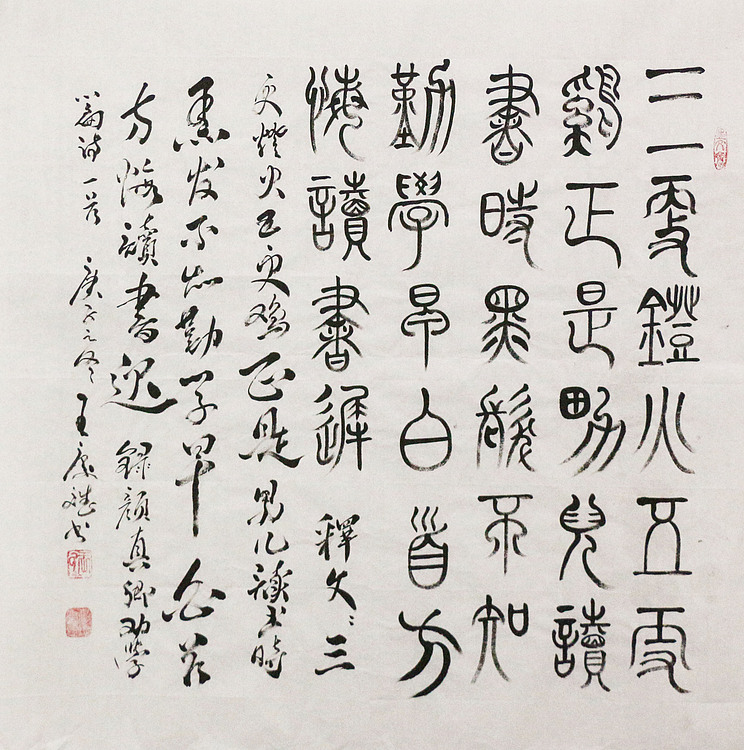 三更鐙火五更
鷄正是男兒讀
書時黑髮不知
勤學早白首方
悔讀書遲 釋文：三
更燈火五更鸡正是男儿讀书時
黑发不知勤学早 白首
方悔讀書迟 錄顏真卿劝学
篇诗一首 庚子元冬王书